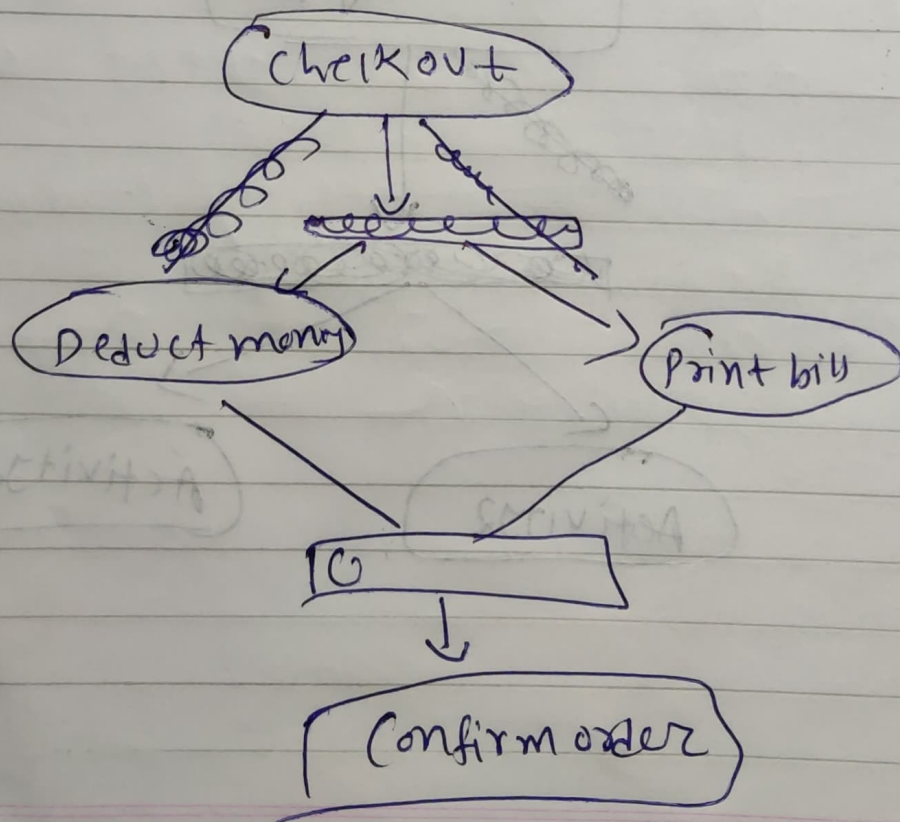 Checkout
Deduct money
Print bill
Confirm order